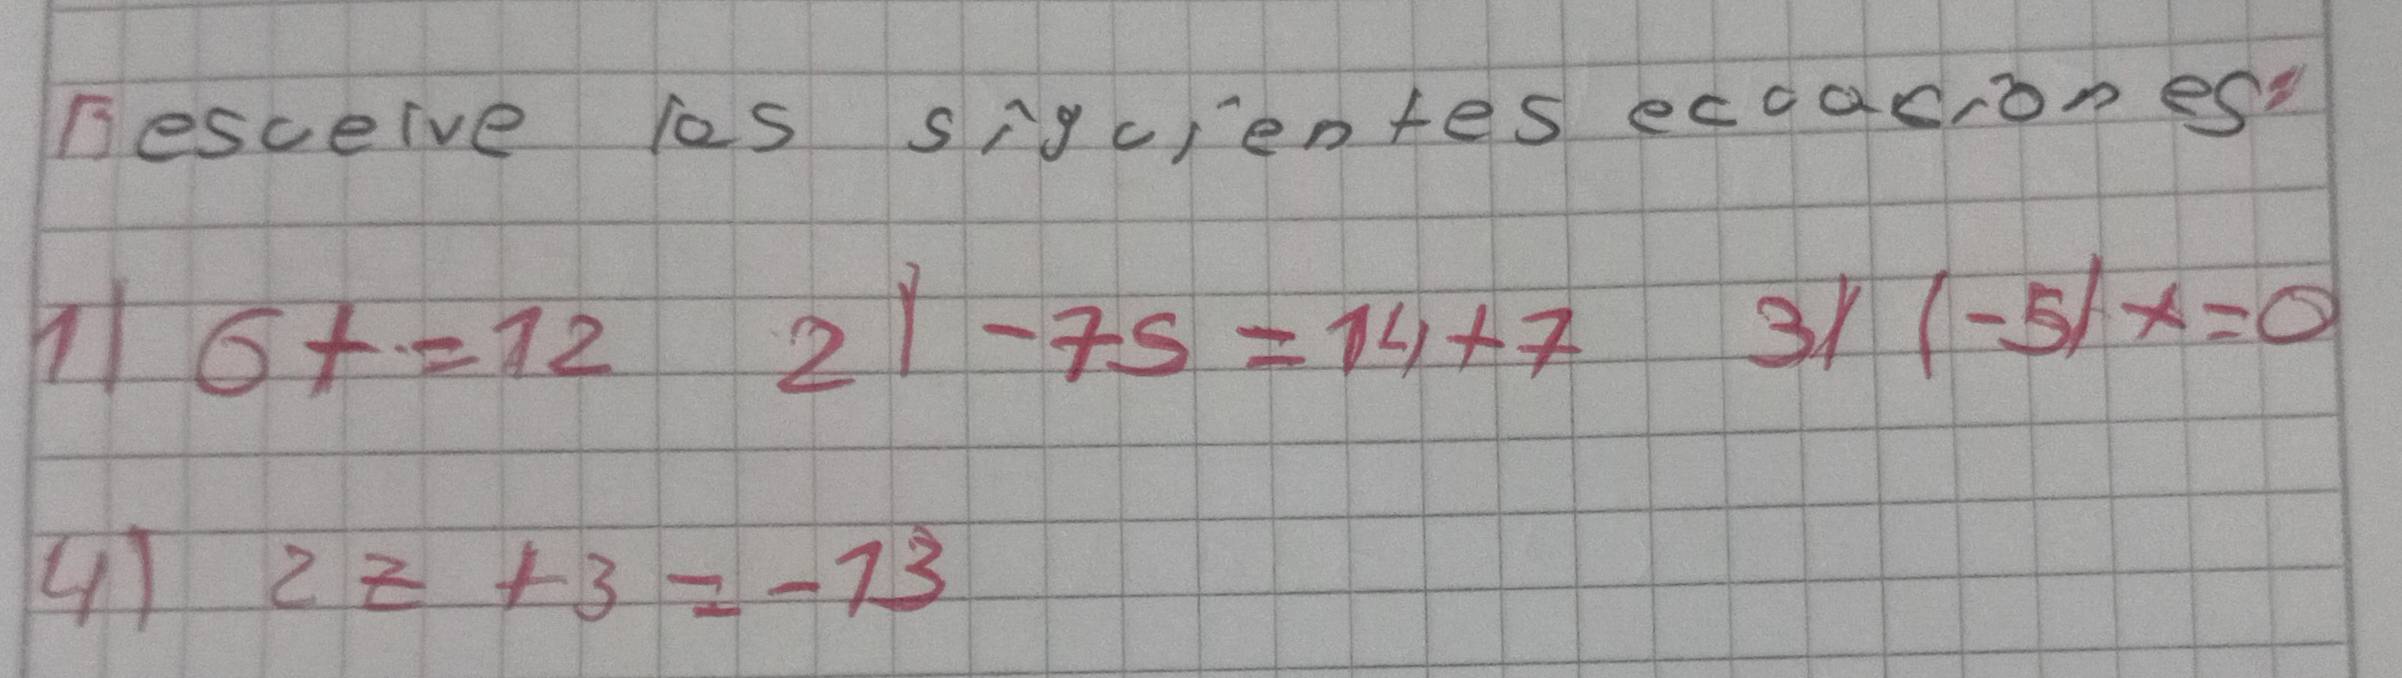 Resuelve las siguientes ecuaciones:
1) 6t = 12 2) -7s = 14 + 7 3) (-5) x = 0
4) 2z + 3 = -13